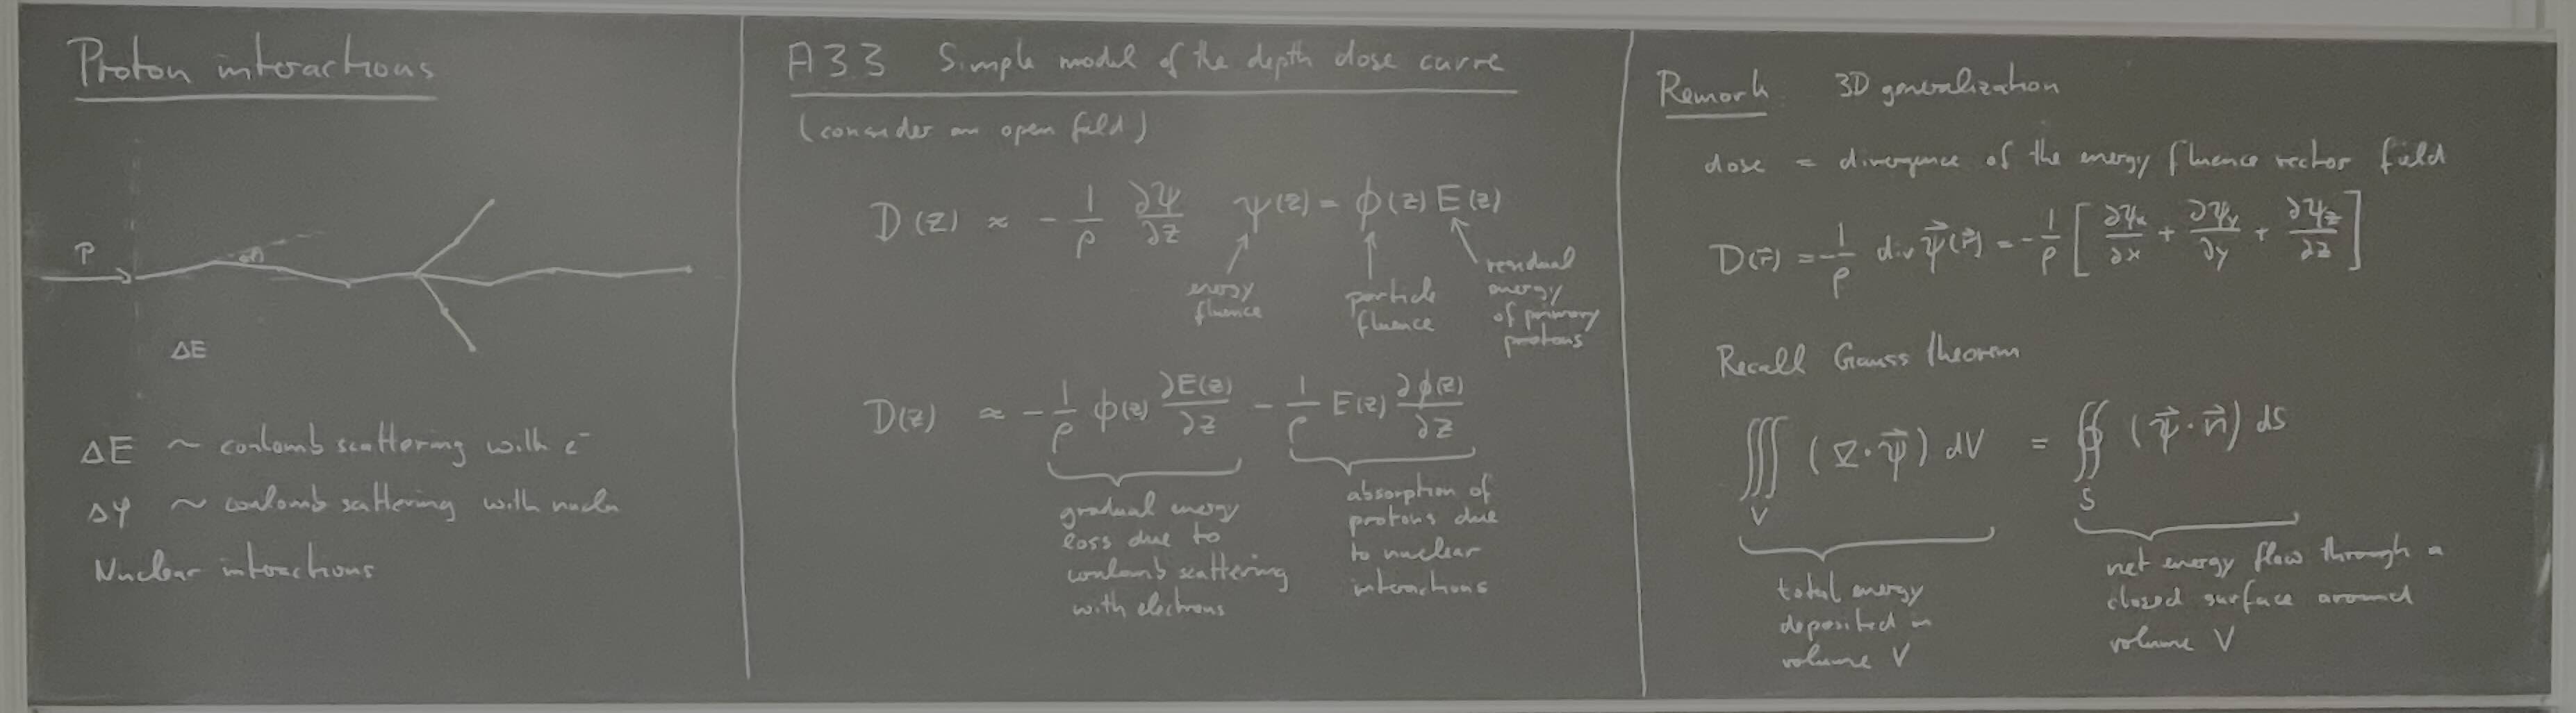 Proton interactions
P
Δφ
ΔE
ΔE ~ coulomb scattering with e⁻
Δφ ~ coulomb scattering with nuclei
Nuclear interactions
A33 Simple model of the depth dose curve
(consider an open field)
D(z) ≈ - 1/ρ ∂ψ/∂z ψ(z) = ϕ(z) E(z)
energy fluence
particle fluence
residual energy of primary protons
D(z) ≈ - 1/ρ ϕ(z) ∂E(z)/∂z - 1/ρ E(z) ∂ϕ(z)/∂z
gradual energy
loss due to
coulomb scattering
with electrons
absorption of
protons due
to nuclear
interactions
Remark 3D generalization
dose = divergence of the energy fluence vector field
D(r⃗) = - 1/ρ div ψ⃗(r⃗) = - 1/ρ [ ∂ψx/∂x + ∂ψy/∂y + ∂ψz/∂z ]
Recall Gauss theorem
∭_V (∇·ψ⃗) dV = ∯_S (ψ⃗·n⃗) dS
total energy
deposited in
volume V
net energy flow through a
closed surface around
volume V